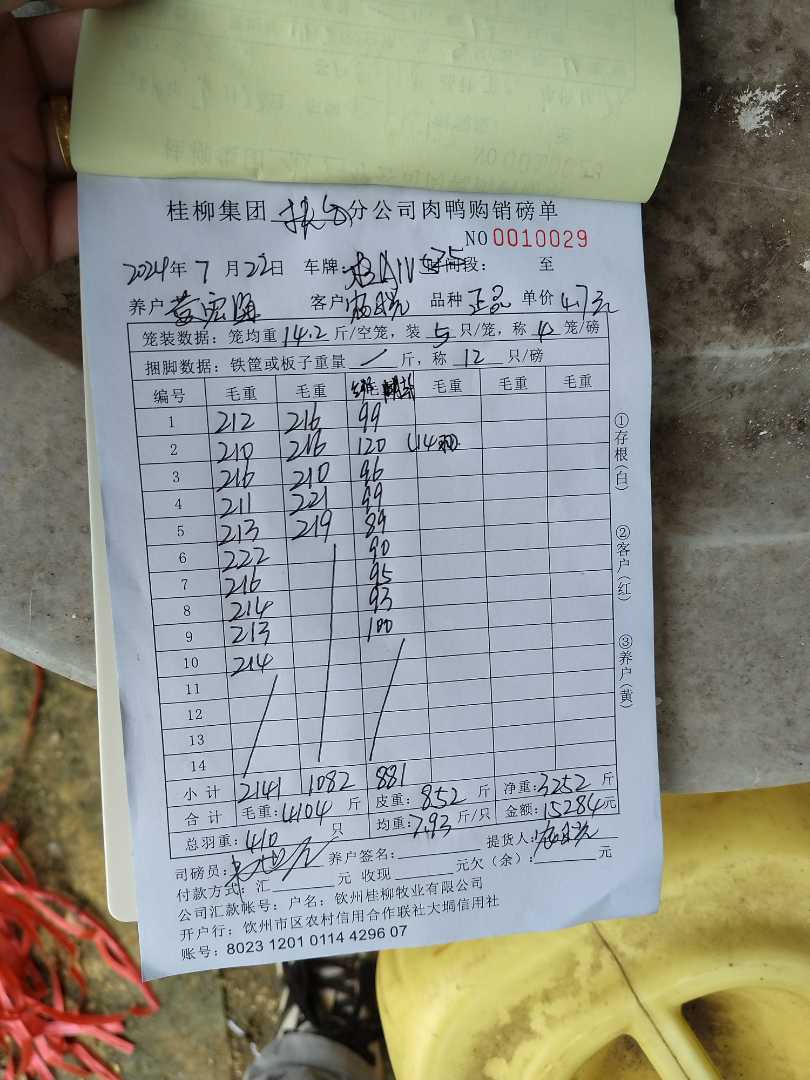 桂柳集团 分公司肉鸭购销磅单
NO 0010029
2024年 7 月 22日 车牌: 时间段: 至
养户 客户 品种 正品 单价 4.7元
笼装数据:笼均重 14.2 斤/空笼,装 5 只/笼,称 4 笼/磅
捆脚数据:铁筐或板子重量 / 斤,称 12 只/磅
编号 毛重 毛重 毛重 毛重 毛重
1 212 216 99
2 210 216 120 (14
3 216 210 96
4 211 221 99
5 213 219 89
6 222 90
7 216 95
8 214 93
9 213 100
10 214
11
12
13
14
小计 2141 1082 881
合计 毛重:4104 斤 皮重:852 斤 净重:3252 斤
总羽重:410 只 均重:7.93 斤/只 金额:15284元
司磅员: 养户签名: 提货人:
付款方式:汇 元 收现 元欠(余): 元
公司汇款帐号:户名:钦州桂柳牧业有限公司
开户行:钦州市区农村信用合作联社大垌信用社
账号:8023 1201 0114 4296 07
①存根(白)
②客户(红)
③养户(黄)